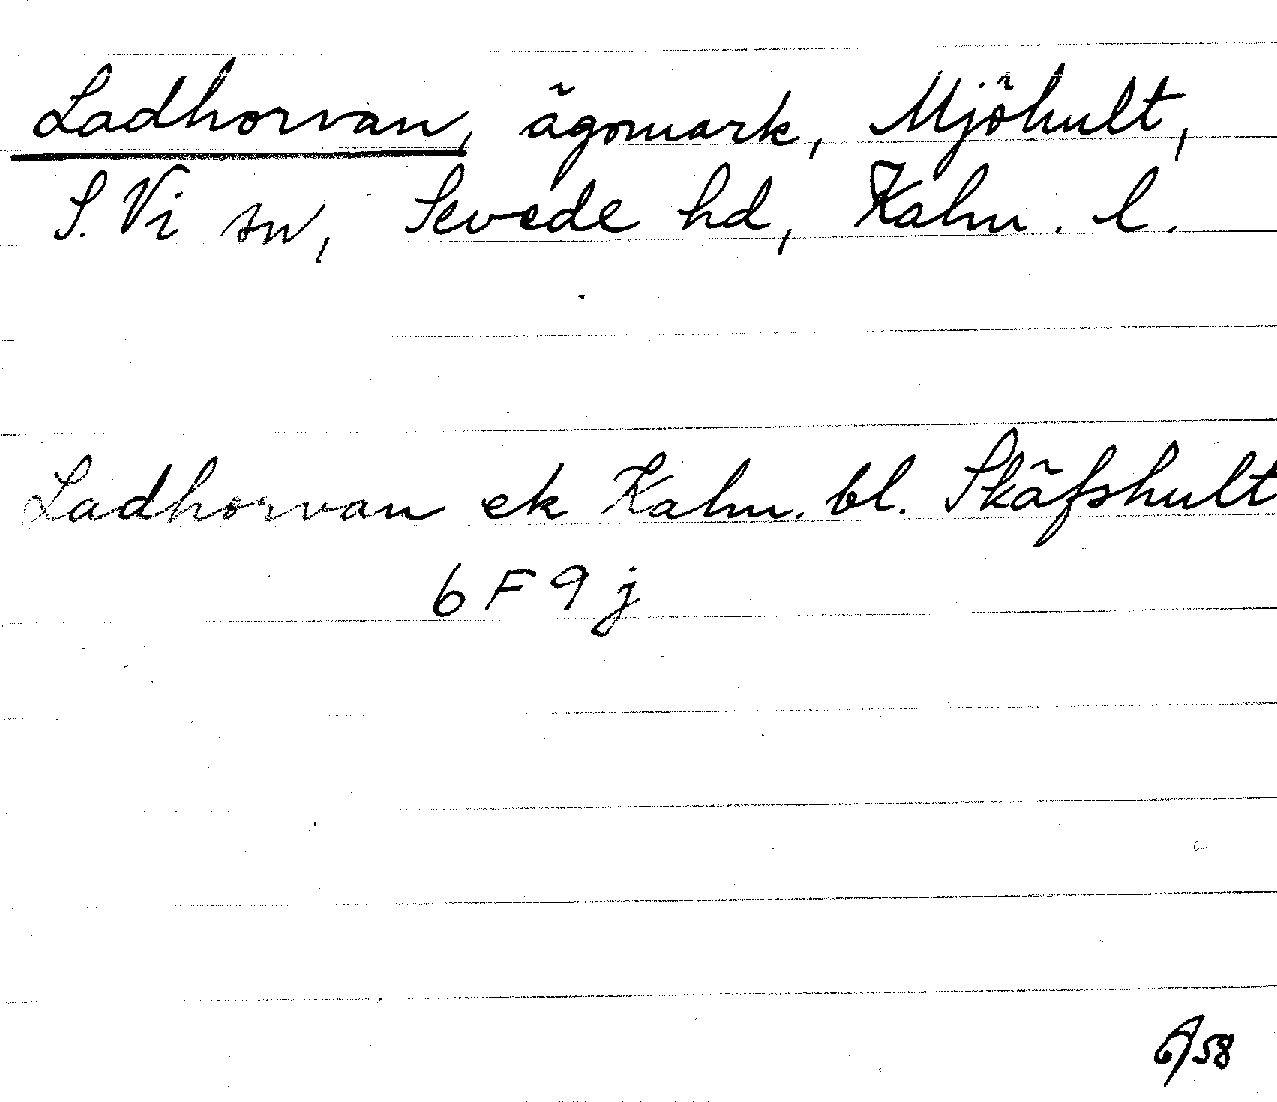 Ladhorvan, ägomark, Mjöhult,
S. Vi sn, Sevede hd, Kalm. l.
Ladhorvan ek Kalm. bl. Skäfshult
6 F 9 j
6/58